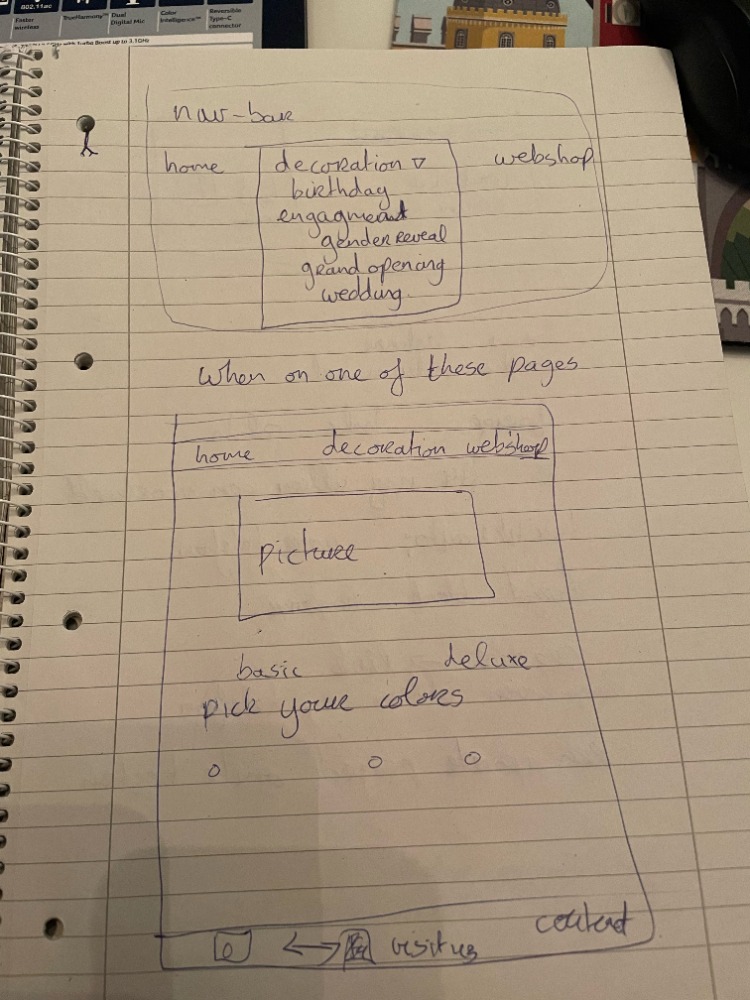 802.11ac
Faster wireless
TrueHarmony™
Dual Digital Mic
Color Intelligence™
Reversible Type-C connector
with Turbo Boost up to 3.1GHz
nav-bar
home decoration ▽ webshop
birthday
engagment
gender reveal
grand opening
wedding
When on one of these pages
home decoration webshop
picture
basic deluxe
pick your colors
contact
visit us